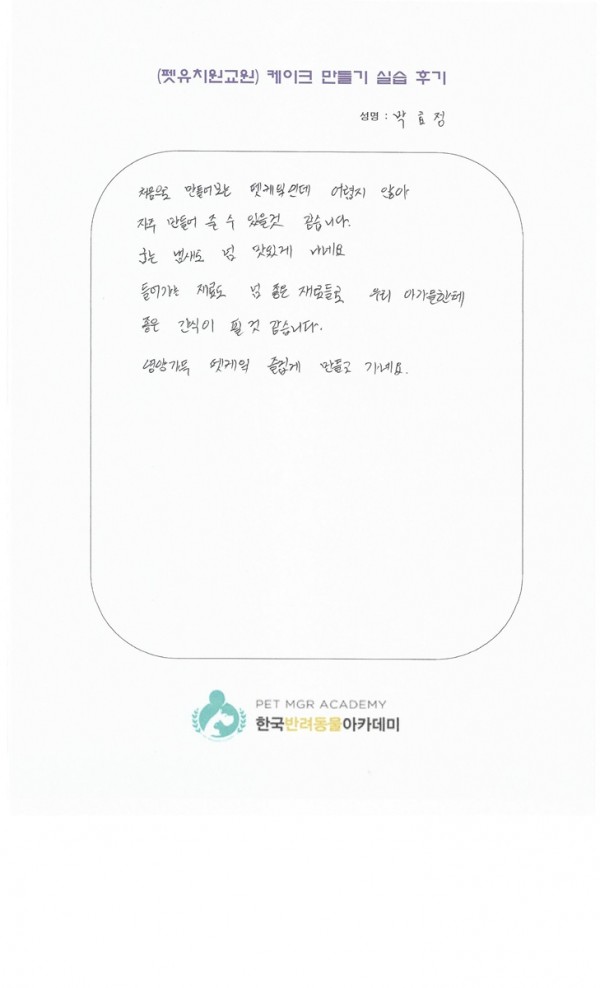 (펫유치원교원) 케이크 만들기 실습 후기
성명 : 박효정
처음으로 만들어보는 펫케익인데 어렵지 않아
자주 만들어 줄 수 있을것 같습니다.
굽는 냄새도 넘 맛있게 나네요
들어가는 재료도 넘 좋은 재료들로 우리 아가들한테
좋은 간식이 될 것 같습니다.
영양가득 펫케익 즐겁게 만들고 가네요.
PET MGR ACADEMY
한국반려동물아카데미